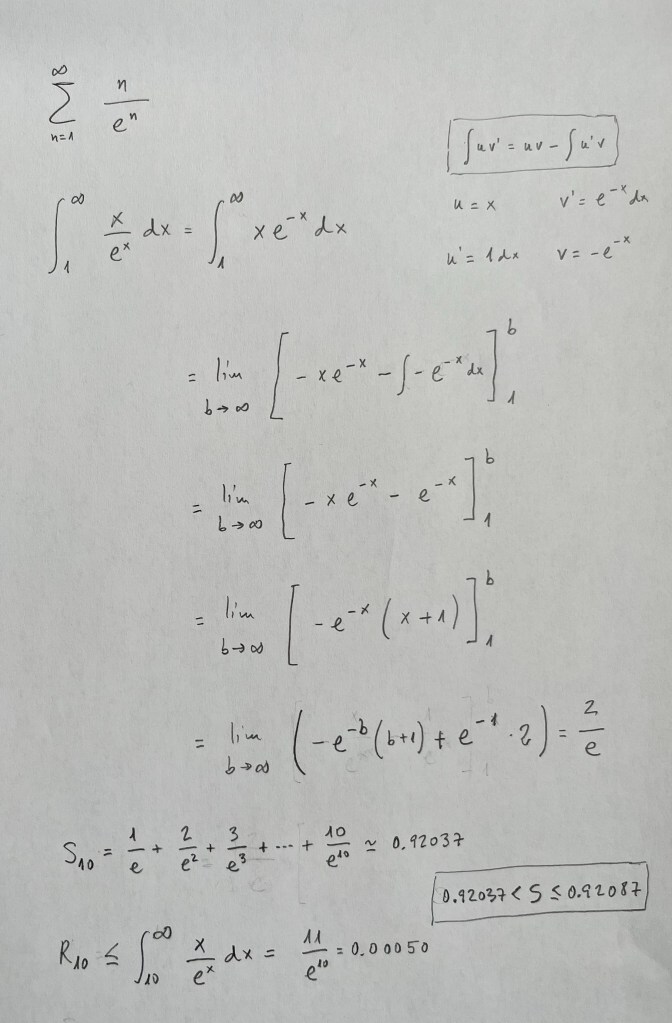 ∞
∑ n/eⁿ
n=1
∫uv' = uv − ∫u'v
u = x   v' = e^(−x) dx
u' = 1dx   v = −e^(−x)
∫₁^∞ x/e^x dx = ∫₁^∞ x e^(−x) dx
= lim b→∞ [−xe^(−x) − ∫−e^(−x) dx]₁^b
= lim b→∞ [−xe^(−x) − e^(−x)]₁^b
= lim b→∞ [−e^(−x)(x+1)]₁^b
= lim b→∞ (−e^(−b)(b+1) + e^(−1)·2) = 2/e
S₁₀ = 1/e + 2/e² + 3/e³ + ··· + 10/e¹⁰ ≃ 0.92037
0.92037 < S ≤ 0.92087
R₁₀ ≤ ∫₁₀^∞ x/e^x dx = 11/e¹⁰ = 0.00050